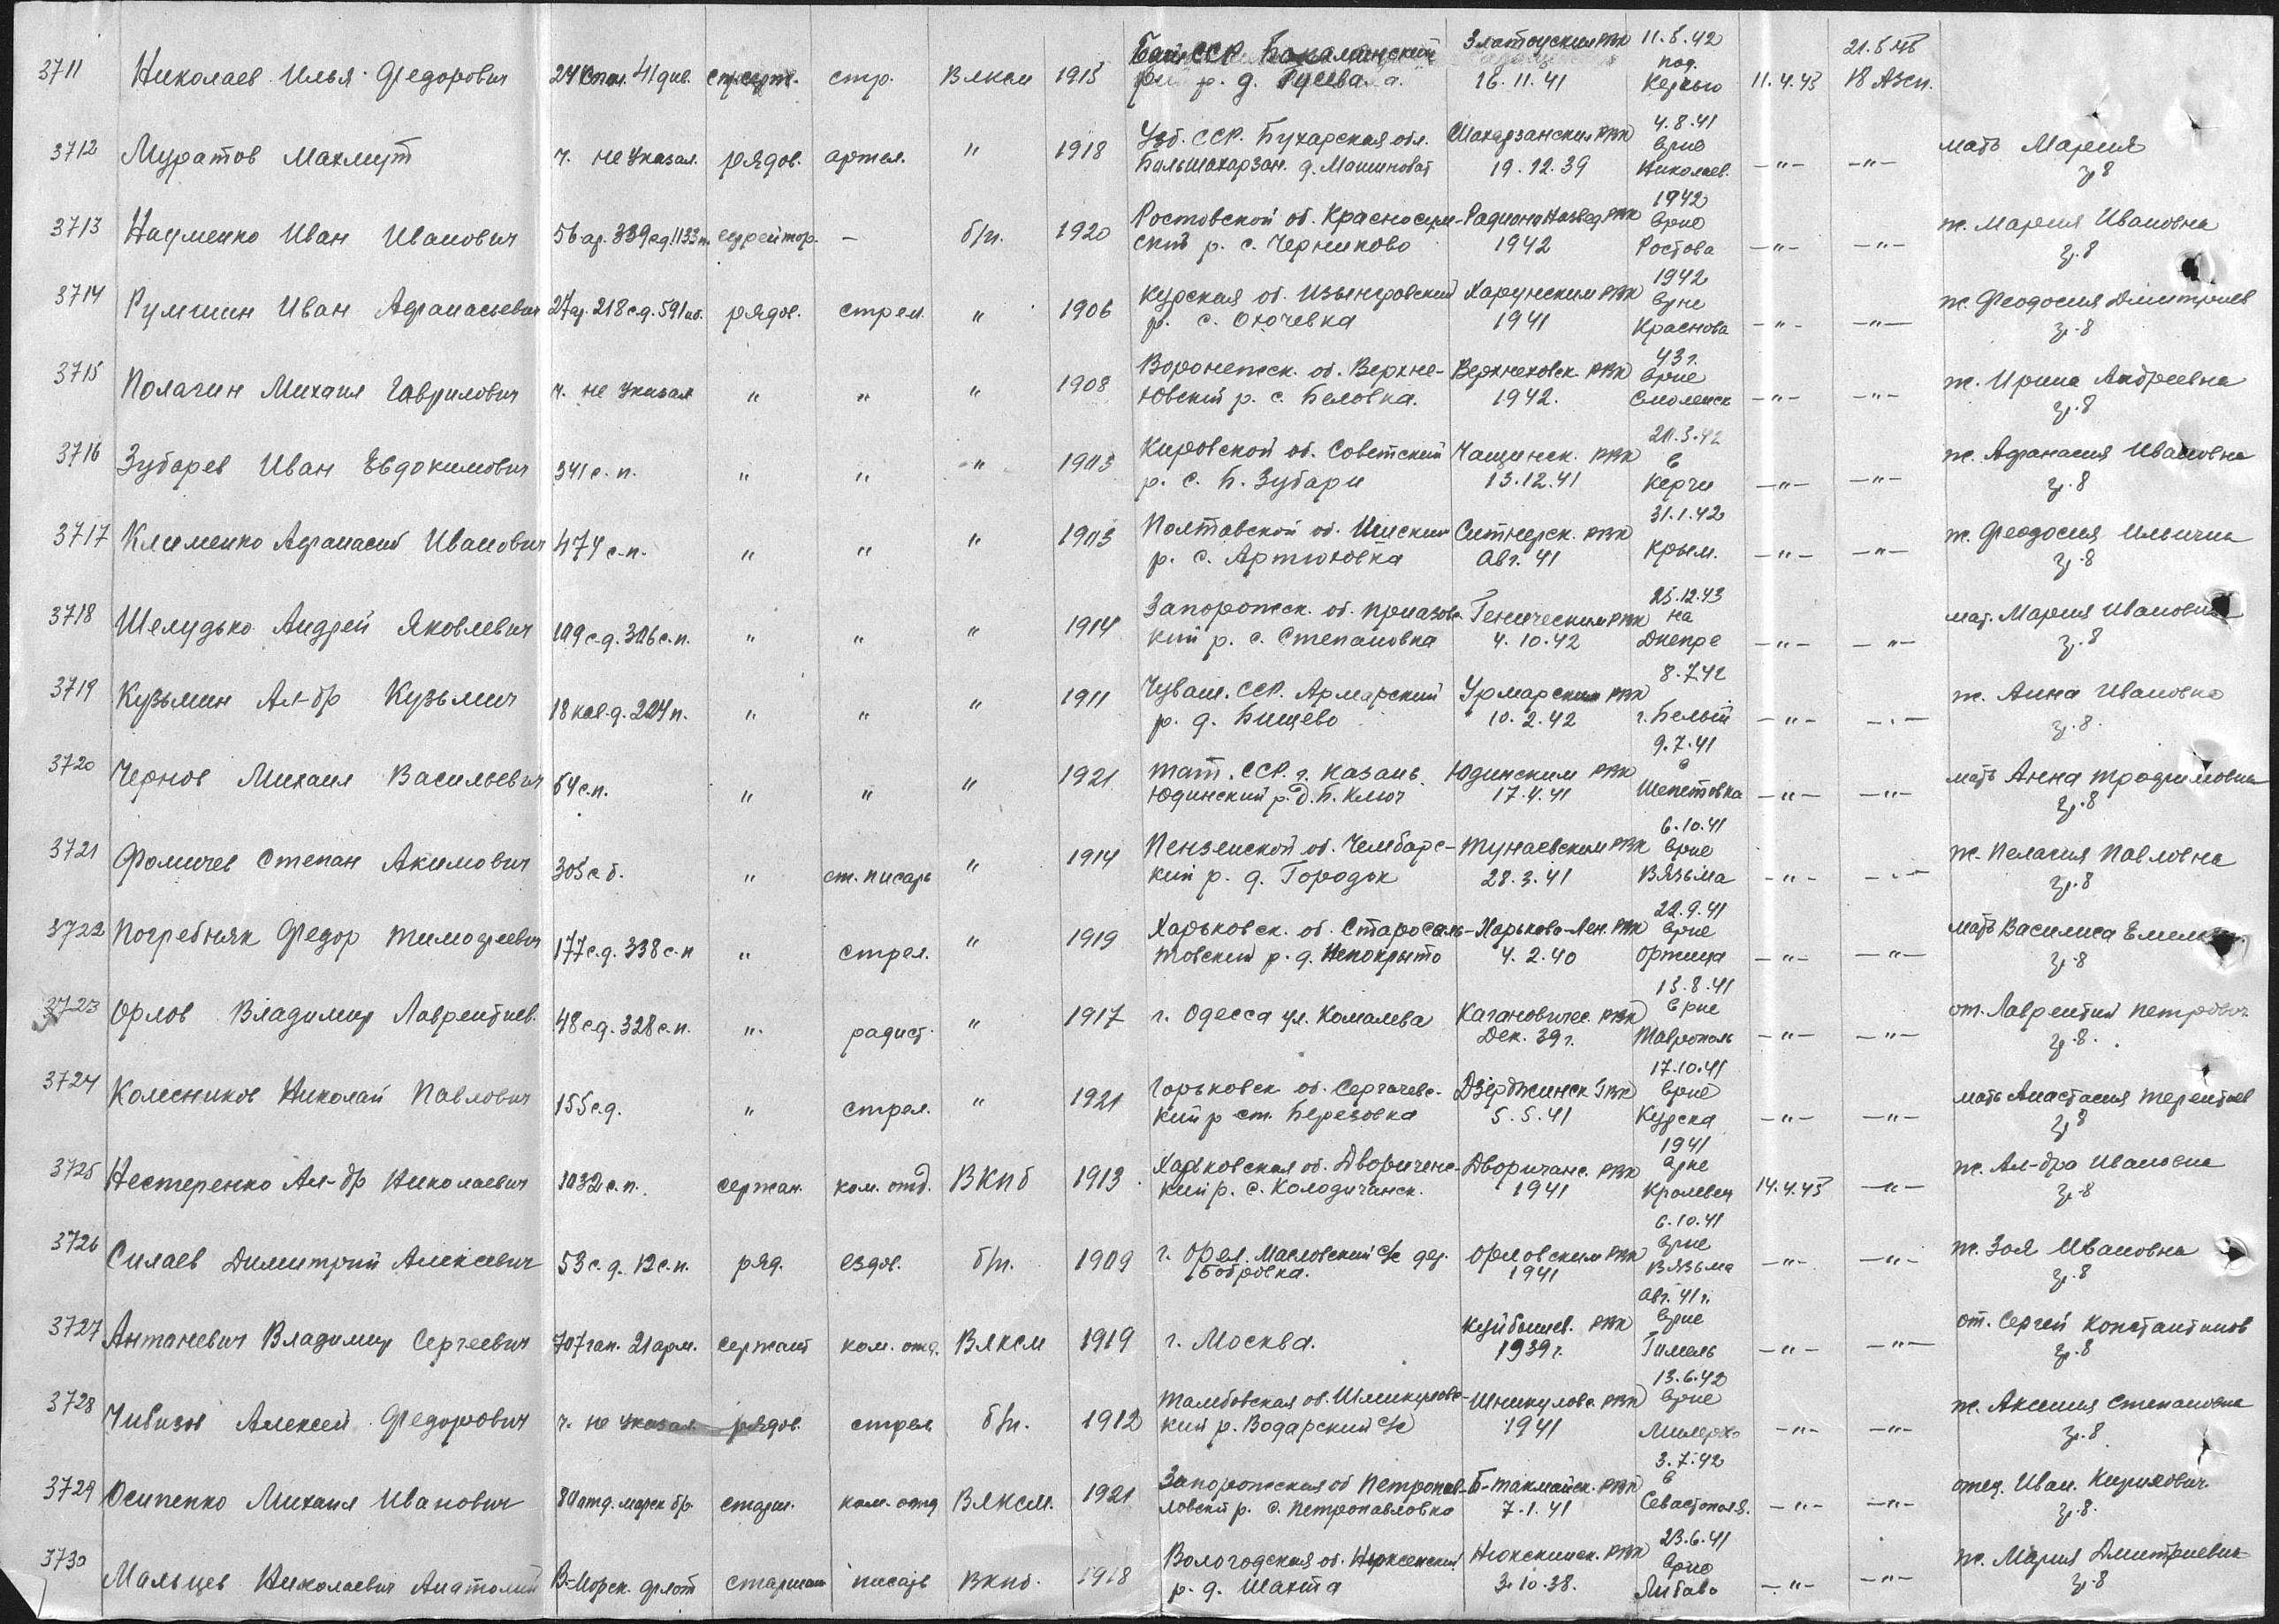 3711 Николаев Илья Федорович 24 41 див. стр. Влксм 1915 Баш.ССР. Бакалинский Златоуским РВК 11.5.42 21.5.45
р. д. Гусева 16.11.41 под. Керчью 11.4.45 18 Азсп.
3712 Муратов Махмут ч. не указал. рядов. артел. " 1918 Узб. ССР. Бухарская обл. РВК 4.8.41 мать Мария
д. 19.12.39 Николаев. —"— —"— 8
3713 Науменко Иван Иванович 56 ар. 339 сд. 1133 п. ефрейтор. — б/п. 1920 Ростовской об. РВК 1942 ж. Мария Ивановна
ский р. с. Черниково 1942 Ростова —"— —"— 8
3714 Румшин Иван Афанасьевич 218 с.д. 591 рядов. стрел. " 1906 Курская об. РВК 1942 ж. Феодосия Дмитриев
р. с. 1941 Краснова —"— —"— 8
3715 Полагин Михаил Гаврилович ч. не указал " " " 1908 Воронежск. об. Верхне- РВК 43 г. ж. Ирина Андреевна
р. с. Беловка. 1942. Смоленск —"— —"— 8
3716 Зубарев Иван Евдокимович 341 с.п. " " " 1903 Кировской об. Советский Чащинск. РВК .3.42 в ж. Афанасия Ивановна
р. с. Б. Зубари 13.12.41 Керчи —"— —"— 8
3717 Клименко Афанасий Иванович 474 с.п. " " " 1903 Полтавской об. РВК 31.1.42 ж. Феодосия Ильични
р. с. Артюховка Авг. 41 Крым. —"— —"— 8
3718 Шелудько Андрей Яковлевич 109 с.д. 306 с.п. " " " 1914 Запорожск. об. Приазов- Геническим РВК 25.12.43 на мат. Мария Ивановна
кий р. с. Степановка 4.10.42 Днепре —"— —"— 8
3719 Кузьмин Ал-др Кузьмич 18 кав.д. 224 п. " " " 1911 Чуваш. ССР. Армарский Урмарским РВК 8.7.42 ж. Анна Ивановна
р. д. Бищево 10.2.42 г. Белый —"— —"— 8.
3720 Чернов Михаил Васильевич 64 с.п. " " " 1921 Тат. ССР. г. Казань Юдинским РВК 9.7.41 в мать Анна Трофимовна
Юдинский р. д. Б. Ключ 17.4.41 Шепетовка —"— —"— 8
3721 Фомичев Степан Акимович 305 с.б. " ст. писарь " 1914 Пензенской об. Чембарс- РВК 6.10.41 ж. Пелагия Павловна
кий р. д. Городок 28.3.41 Вязьма —"— —"— 8
3722 Погребняк Федор Тимофеевич 177 с.д. 338 с.п " стрел. " 1919 Харьковск. об. Старосаль- Харьково-Лен. РВК 22.9.41 мать Василиса
товский р. д. Непокрыто 4.2.40 Оржица —"— —"— 8
3723 Орлов Владимир Лаврентиев. 48 с.д. 328 с.п. " радист. " 1917 г. Одесса ул. Комалева Кагановичес. РВК 13.8.41 от. Лаврентий Петрович
Дек. 39 г. Тавраполь —"— —"— 8.
3724 Колесников Николай Павлович 155 с.д. " стрел. " 1921 Горьковск об. Сергачевс- Дзержинск РВК 17.10.41 мать Анастасия Терентьев
кий р ст. Березовка 5.5.41 Курска —"— —"— 8
3725 Нестеренко Ал-др Николаевич 1032 с.п. сержан. ком. отд. ВКпб 1913 Харьковская об. Двориченс- Дворичанс. РВК 1941 ж. Ал-дра Ивановна
кий р. с. Колодичанск. 1941 Кролевец 14.4.45 —"— 8
3726 Силаев Димитрий Алексеевич 53 с.д. 12 с.п. ряд. ездов. б/п. 1909 г. Орел. Масловский с/с дер. Орловским РВК 6.10.41 ж. Зоя Ивановна
Бобровка. 1941 Вязьма —"— —"— 8
3727 Антаневич Владимир Сергеевич 707 гап. 21 арм. сержант ком. отд. Влксм 1919 г. Москва. Куйбышев. РВК Авг. 41 г. от. Сергей Константинов
1939 г. Гомель —"— —"— 8
3728 Чибизов Алексей Федорович ч. не указал рядов. стрел. б/п. 1912 Тамбовская об. РВК 13.6.42 ж. Аксиния Степановна
кий р. Водарский с/с 1941 —"— —"— 8
3729 Осипенко Михаил Иванович отд. морск бр. старш. ком. отд Влксм. 1921 Запорожская об Петропав- Б-Такмакск. РВК 3.7.42 в отец. Иван. Кирилович.
ловский р. с. Петропавловка 7.1.41 Севастополь. —"— —"— 8.
3730 Мальцев Николаевич Анатолий В-Морск. флот старшин писарь Вкпб. 1918 Вологодская об. Нюксенский Нюксинск. РВК 23.6.41 ж. Мария Дмитриевна
р. д. Шахта 3.10.38. Либава —"— —"— 8